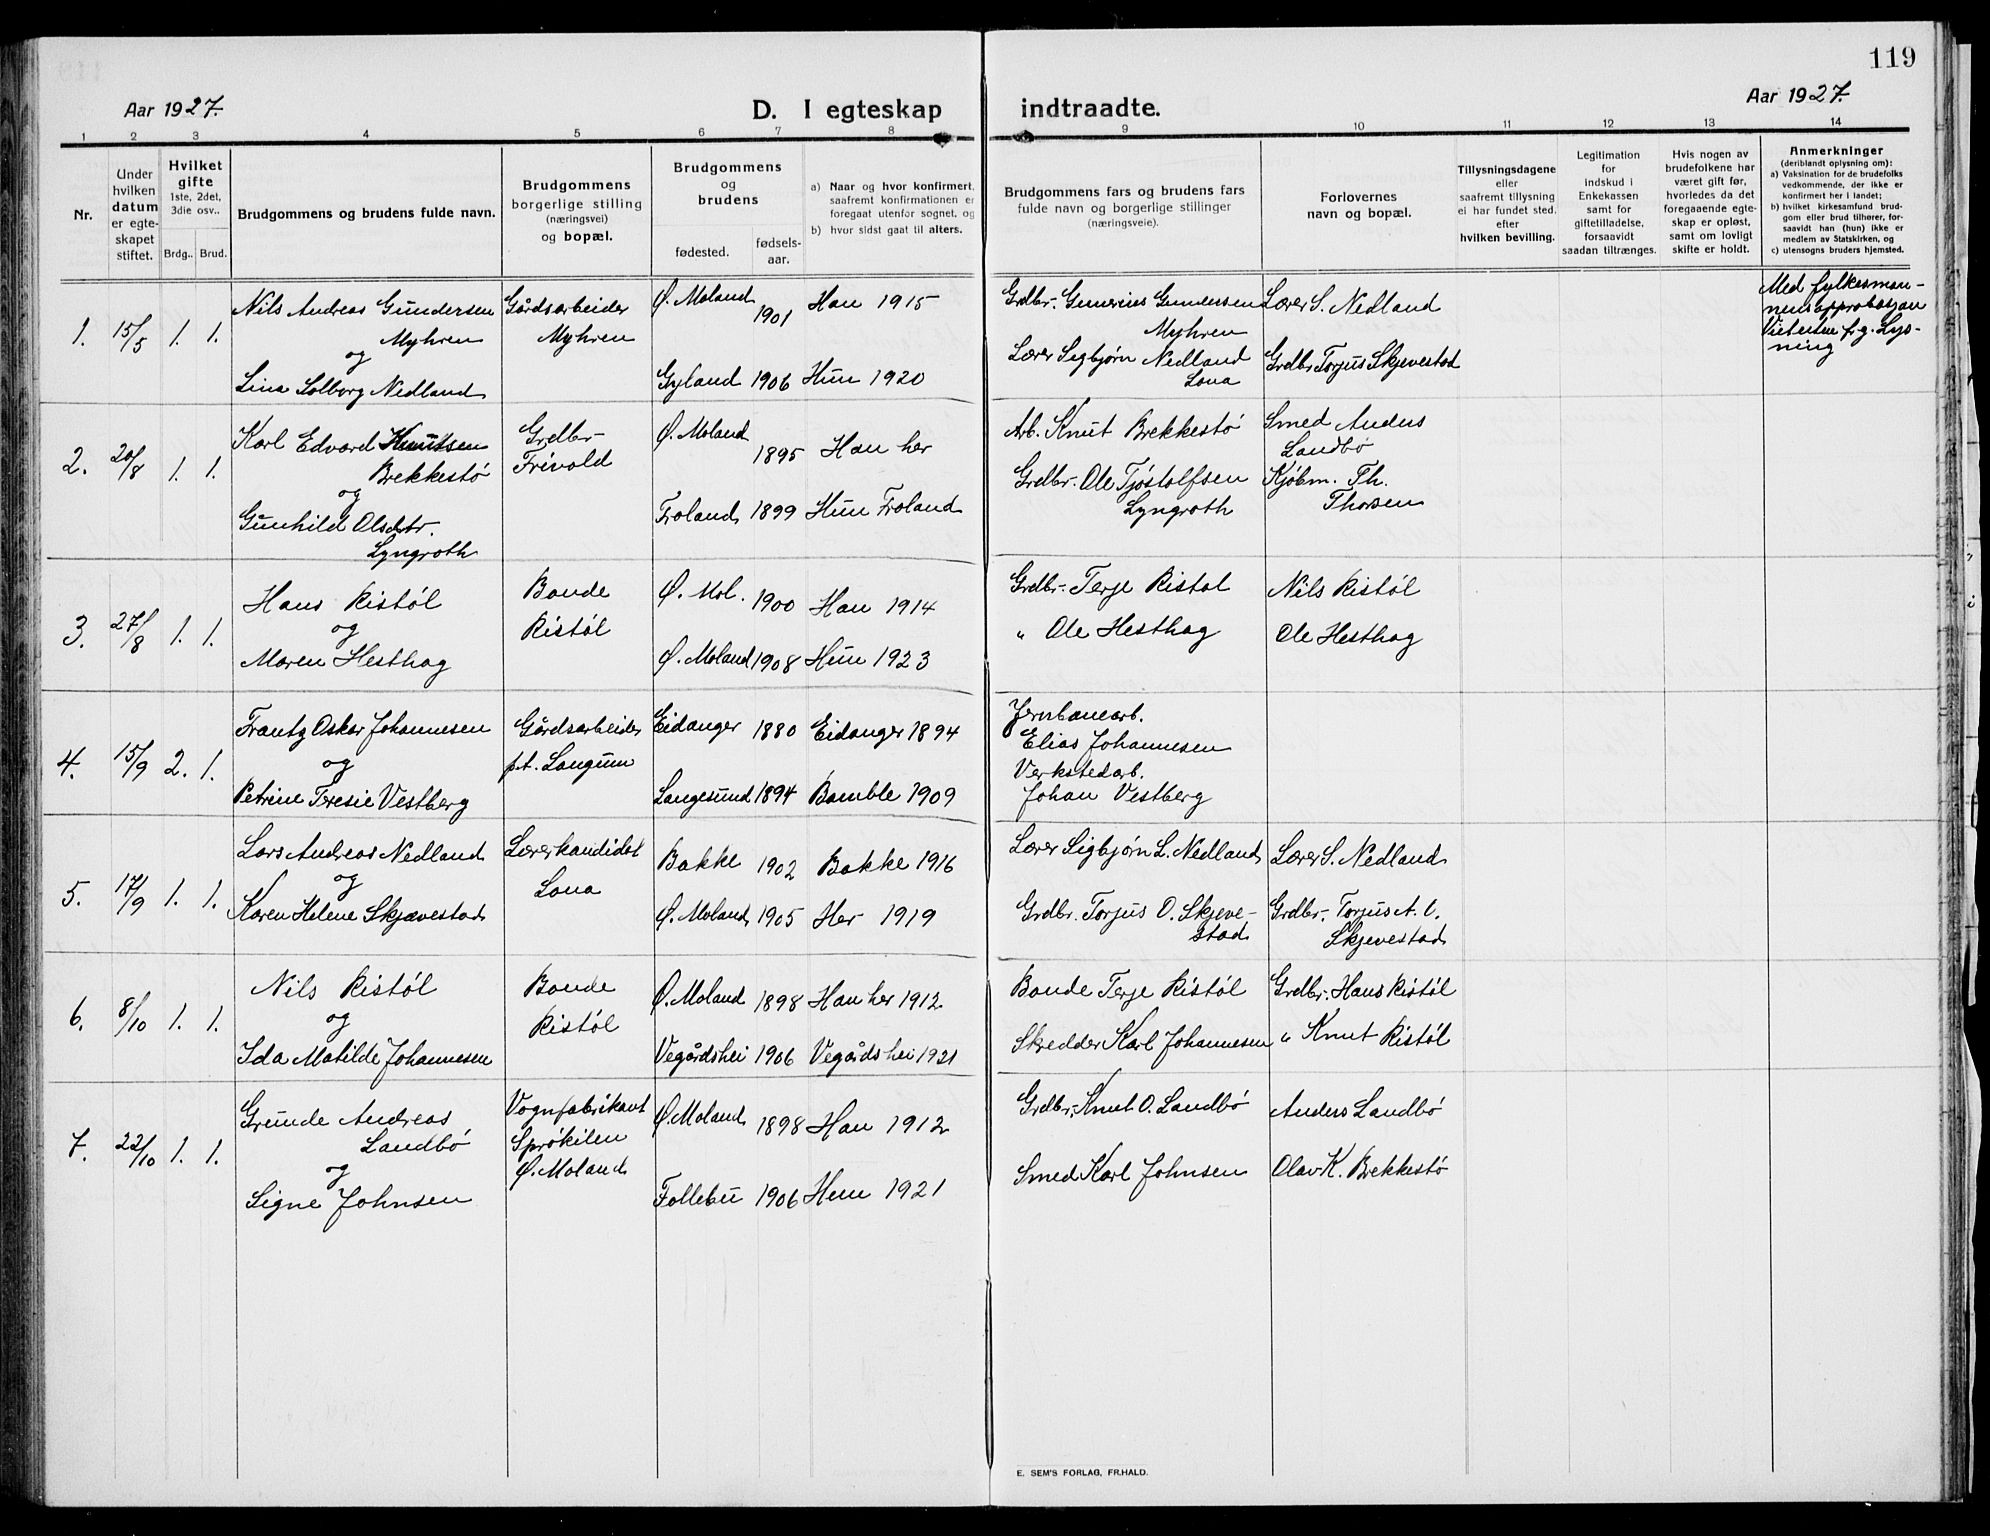 119
Aar 1927.
D. I egteskap indtraadte.
Aar 1927.
1 2 3 4 5 6 7 8 9 10 11 12 13 14
Nr.
Under
hvilken
datum
er egte-
skapet
stiftet.
Hvilket
gifte
1ste, 2det,
3die osv..
Brdg.. Brud.
Brudgommens og brudens fulde navn.
Brudgommens
borgerlige stilling
(næringsvei)
og bopæl.
Brudgommens
og
brudens
fødested.
fødsels-
aar.
a) Naar og hvor konfirmert,
saafremt konfirmationen er
foregaat utenfor sognet, og
b) hvor sidst gaat til alters.
Brudgommens fars og brudens fars
fulde navn og borgerlige stillinger
(næringsveie).
Forlovernes
navn og bopæl.
Tillysningsdagene
eller
saafremt tillysning
ei har fundet sted,
efter
hvilken bevilling.
Legitimation
for
indskud i
Enkekassen
samt for
giftetilladelse,
forsaavidt
saadan tiltrænges.
Hvis nogen av
brudefolkene har
været gift før,
hvorledes da det
foregaaende egte-
skap er opløst,
samt om lovligt
skifte er holdt.
Anmerkninger
(deriblandt oplysning om):
a) Vaksination for de brudefolks
vedkommende, der ikke er
konfirmert her i landet;
b) hvilket kirkesamfund brud-
gom eller brud tilhører, for-
saavidt han (hun) ikke er
medlem av Statskirken, og
c) utensogns bruders hjemsted.
1. 15/5 1. 1.
Nils Andreas Gundersen
Myhren
og
Lina Solborg Nedland
Gårdsarbeider
Myhren
Ø. Moland 1901 Han 1915
Gyland 1906 Hun 1920
Grdbr. Gunerius Gundersen
Myhren
Lærer Sigbjørn Nedland
Lona
Lærer S. Nedland
Grdbr. Torjus Skjevestad
Med fylkesman-
nens approbasjon
Vietitlne frg. Lys-
ning
2. 20/8 1. 1.
Karl Edvard Knutsen
Brekkestø
og
Gunhild Olsdtr.
Lyngroth
Grdbr.
Frivold
Ø. Moland 1895 Han her
Froland 1899 Hun Froland
Arb. Knut Brekkestø
Grdbr. Ole Tjøstolfsen
Lyngroth
Smed Anders
Landbø
Kjøbm. Th.
Thorsen
3. 27/8 1. 1.
Hans Ristøl
og
Maren Hesthag
Bonde
Ristøl
Ø. Mol. 1900 Han 1914
Ø. Moland 1908 Hun 1923
Grdbr. Terje Ristøl
" Ole Hesthag
Nils Ristøl
Ole Hesthag
4. 15/9 2. 1.
Frantz Oskar Johannesen
og
Petrine Teresie Vestberg
Gårdsarbeider
p.t. Langum
Eidanger 1880 Eidanger 1894
Langesund 1894 Bamble 1909
Jernbanearb.
Elias Johannesen
Verkstedarb.
Johan Vestberg
5. 17/9 1. 1.
Lars Andreas Nedland
og
Karen Helene Skjævestad
Lærerkandidat
Lona
Bakke 1902 Bakke 1916
Ø. Moland 1905 Her 1919
Lærer Sigbjørn L. Nedland
Grdbr. Torjus O. Skjeve-
stad
Lærer S. Nedland
Grdbr. Torjus A. O.
Skjevestad
6. 8/10 1. 1.
Nils Ristøl
og
Ida Matilde Johannesen
Bonde
Ristøl
Ø. Moland 1898 Han her 1912
Vegårdshei 1906 Vegårdshei 1921
Bonde Terje Ristøl
Skredder Karl Johannesen
Grdbr. Hans Ristøl
" Knut Ristøl
7. 22/10 1. 1.
Grunde Andreas
Landbø
og
Signe Johnsen
Vognfabrikant
Sprøkilen
Ø. Moland
Ø. Moland 1898 Han 1912
Follebu 1906 Hun 1921
Grdbr. Knut O. Landbø
Smed Karl Johnsen
Anders Landbø
Olav K. Brekkestø
E. SEM'S FORLAG, FR.HALD.